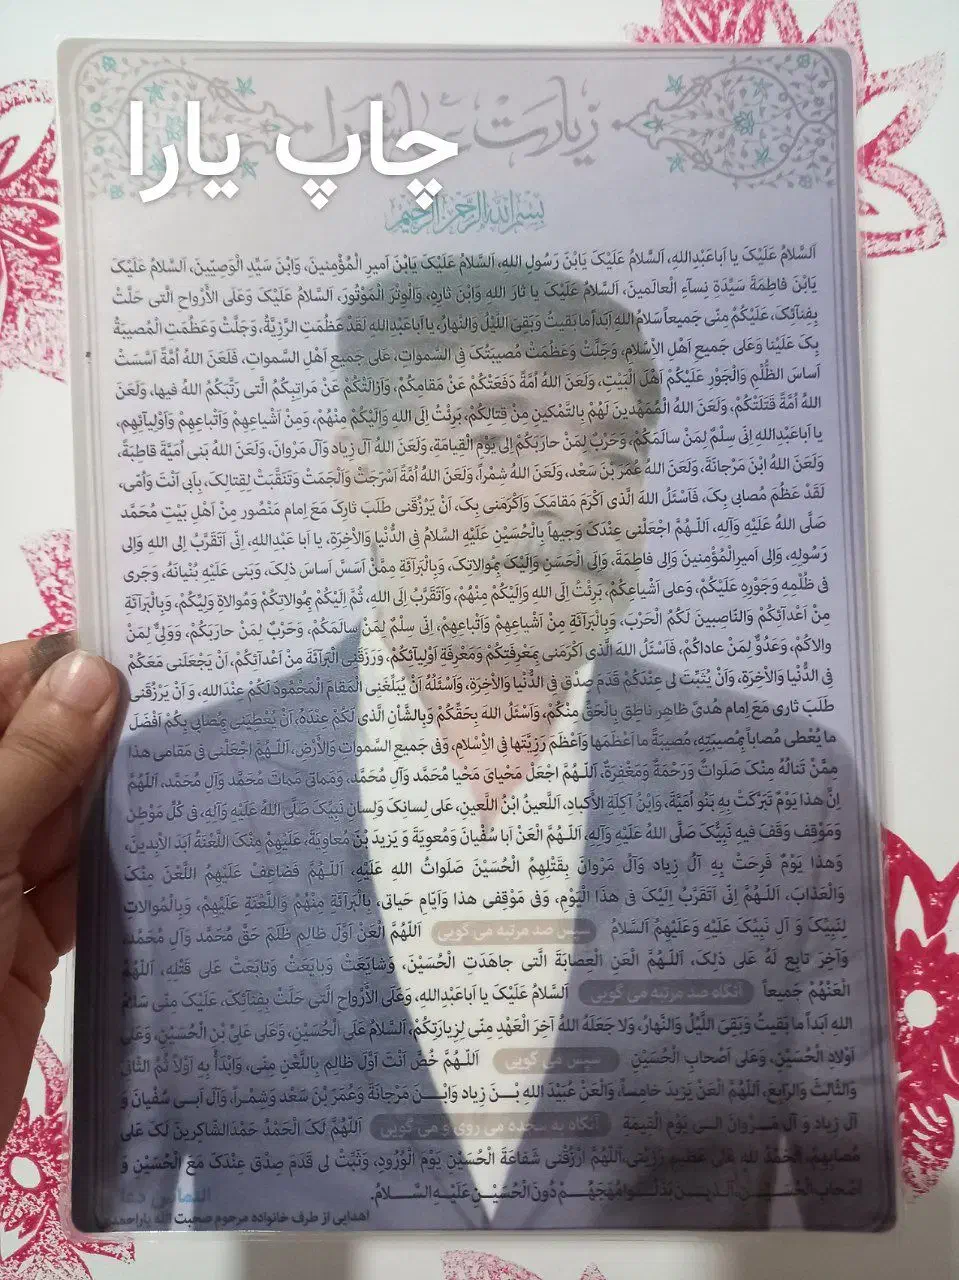 زیارت عاشورا
چاپ یارا
بسم الله الرحمن الرحیم
اَلسَّلامُ عَلَیْکَ یا اَباعَبْدِاللهِ، اَلسَّلامُ عَلَیْکَ یَابْنَ رَسُولِ اللهِ، اَلسَّلامُ عَلَیْکَ یَابْنَ اَمیرِ الْمُؤْمِنینَ، وَابْنَ سَیِّدِ الْوَصِیّینَ، اَلسَّلامُ عَلَیْکَ
یَابْنَ فاطِمَةَ سَیِّدَةِ نِسآءِ الْعالَمینَ، اَلسَّلامُ عَلَیْکَ یا ثارَ اللهِ وَابْنَ ثارِهِ، وَالْوِتْرَ الْمَوْتُورَ، اَلسَّلامُ عَلَیْکَ وَعَلَی الْأَرْواحِ الَّتی حَلَّتْ
بِفِنآئِکَ، عَلَیْکُمْ مِنّی جَمیعاً سَلامُ اللهِ اَبَداً ما بَقیتُ وَبَقِیَ اللَّیْلُ وَالنَّهارُ، یا اَباعَبْدِاللهِ لَقَدْ عَظُمَتِ الرَّزِیَّةُ، وَجَلَّتْ وَعَظُمَتِ الْمُصیبَةُ
بِکَ عَلَیْنا وَعَلی جَمیعِ اَهْلِ الْاِسْلامِ، وَجَلَّتْ وَعَظُمَتْ مُصیبَتُکَ فِی السَّمواتِ، عَلی جَمیعِ اَهْلِ السَّمواتِ، فَلَعَنَ اللهُ اُمَّةً اَسَّسَتْ
اَساسَ الظُّلْمِ وَالْجَوْرِ عَلَیْکُمْ اَهْلَ الْبَیْتِ، وَلَعَنَ اللهُ اُمَّةً دَفَعَتْکُمْ عَنْ مَقامِکُمْ، وَاَزالَتْکُمْ عَنْ مَراتِبِکُمُ الَّتی رَتَّبَکُمُ اللهُ فیها، وَلَعَنَ
اللهُ اُمَّةً قَتَلَتْکُمْ، وَلَعَنَ اللهُ الْمُمَهِّدینَ لَهُمْ بِالتَّمْکینِ مِنْ قِتالِکُمْ، بَرِئْتُ اِلَی اللهِ وَاِلَیْکُمْ مِنْهُمْ، وَمِنْ اَشْیاعِهِمْ وَاَتْباعِهِمْ وَاَوْلِیآئِهِم،
یا اَباعَبْدِاللهِ اِنّی سِلْمٌ لِمَنْ سالَمَکُمْ، وَحَرْبٌ لِمَنْ حارَبَکُمْ اِلی یَوْمِ الْقِیامَةِ، وَلَعَنَ اللهُ آلَ زِیاد وَآلَ مَرْوانَ، وَلَعَنَ اللهُ بَنی اُمَیَّةَ قاطِبَةً،
وَلَعَنَ اللهُ ابْنَ مَرْجانَةَ، وَلَعَنَ اللهُ عُمَرَ بْنَ سَعْد، وَلَعَنَ اللهُ شِمْراً، وَلَعَنَ اللهُ اُمَّةً اَسْرَجَتْ وَاَلْجَمَتْ وَتَنَقَّبَتْ لِقِتالِکَ، بِاَبی اَنْتَ وَاُمّی،
لَقَدْ عَظُمَ مُصابی بِکَ، فَاَسْئَلُ اللهَ الَّذی اَکْرَمَ مَقامَکَ وَاَکْرَمَنی بِکَ، اَنْ یَرْزُقَنی طَلَبَ ثارِکَ مَعَ اِمام مَنْصُور مِنْ اَهْلِ بَیْتِ مُحَمَّد
صَلَّی اللهُ عَلَیْهِ وَآلِهِ، اَللّهُمَّ اجْعَلْنی عِنْدَکَ وَجیهاً بِالْحُسَیْنِ عَلَیْهِ السَّلامُ فِی الدُّنْیا وَالْاخِرَةِ، یا اَبا عَبْدِاللهِ، اِنّی اَتَقَرَّبُ اِلی اللهِ وَاِلی
رَسُولِهِ، وَاِلی امیرِالْمُؤْمِنینَ وَاِلی فاطِمَةَ، وَاِلَی الْحَسَنِ وَاِلَیْکَ بِمُوالاتِکَ، وَبِالْبَرآئَةِ مِمَّنْ اَسَسَّ اَساسَ ذلِکَ، وَبَنی عَلَیْهِ بُنْیانَهُ، وَجَری
فی ظُلْمِهِ وَجَوْرِهِ عَلَیْکُمْ، وَعلی اَشْیاعِکُمْ، بَرِئْتُ اِلَی اللهِ وَاِلَیْکُمْ مِنْهُمْ، وَاَتَقَرَّبُ اِلَی اللهِ، ثُمَّ اِلَیْکُمْ بِمُوالاتِکُمْ وَمُوالاةِ وَلِیِّکُمْ، وَبِالْبَرآئَةِ
مِنْ اَعْدآئِکُمْ وَالنّاصِبینَ لَکُمُ الْحَرْبَ، وَبِالْبَرآئَةِ مِنْ اَشْیاعِهِمْ وَاَتْباعِهِمْ، اِنّی سِلْمٌ لِمَنْ سالَمَکُمْ، وَحَرْبٌ لِمَنْ حارَبَکُمْ، وَوَلِیٌّ لِمَنْ
والاکُمْ، وَعَدُوٌّ لِمَنْ عاداکُمْ، فَاَسْئَلُ اللهَ الَّذی اَکْرَمَنی بِمَعْرِفَتِکُمْ وَمَعْرِفَةِ اَوْلِیآئِکُمْ، وَرَزَقَنِی الْبَرآئَةَ مِنْ اَعْدآئِکُمْ، اَنْ یَجْعَلَنی مَعَکُمْ
فِی الدُّنْیا وَالْاخِرَةِ، وَاَنْ یُثَبِّتَ لی عِنْدَکُمْ قَدَمَ صِدْق فِی الدُّنْیا وَالْاخِرَةِ، وَاَسْئَلُهُ اَنْ یُبَلِّغَنِی الْمَقامَ الْمَحْمُودَ لَکُمْ عِنْدَاللهِ، وَ اَنْ یَرْزُقَنی
طَلَبَ ثاری مَعَ اِمام هُدیً ظاهِر ناطِق بِالْحَقِّ مِنْکُمْ، وَاَسْئَلُ اللهَ بِحَقِّکُمْ وَبِالشَّاْنِ الَّذی لَکُمْ عِنْدَهُ، اَنْ یُعْطِیَنی بِمُصابی بِکُمْ اَفْضَلَ
ما یُعْطی مُصاباً بِمُصیبَتِهِ، مُصیبَةً ما اَعْظَمَها وَاَعْظَمَ رَزِیَّتَها فِی الْاِسْلامِ، وَفی جَمیعِ السَّمواتِ وَالْأَرْضِ، اَللّهُمَّ اجْعَلْنی فی مَقامی هذا
مِمَّنْ تَنالُهُ مِنْکَ صَلَواتٌ وَرَحْمَةٌ وَمَغْفِرَةٌ، اَللّهُمَّ اجْعَلْ مَحْیایَ مَحْیا مُحَمَّد وَآلِ مُحَمَّد، وَمَماتی مَماتَ مُحَمَّد وَآلِ مُحَمَّد، اَللّهُمَّ
اِنَّ هذا یَوْمٌ تَبَرَّکَتْ بِهِ بَنُو اُمَیَّةَ، وَابْنُ آکِلَةِ الْأَکبادِ، اَللَّعینُ ابْنُ اللَّعینِ، عَلی لِسانِکَ وَلِسانِ نَبِیِّکَ صَلَّی اللهُ عَلَیْهِ وَآلِهِ، فی کُلِّ مَوْطِن
وَمَوْقِف وَقَفَ فیهِ نَبِیُّکَ صَلَّی اللهُ عَلَیْهِ وَآلِهِ، اَللّهُمَّ الْعَنْ اَبا سُفْیانَ وَمُعوِیَةَ وَ یَزیدَ بْنَ مُعاوِیَةَ، عَلَیْهِمْ مِنْکَ اللَّعْنَةُ اَبَدَ الْابِدینَ،
وَهذا یَوْمٌ فَرِحَتْ بِهِ آلُ زِیاد وَآلُ مَرْوانَ بِقَتْلِهِمُ الْحُسَیْنَ صَلَواتُ اللهِ عَلَیْهِ، اَللّهُمَّ فَضاعِفْ عَلَیْهِمُ اللَّعْنَ مِنْکَ
وَالْعَذابَ، اَللّهُمَّ اِنّی اَتَقَرَّبُ اِلَیْکَ فی هذَا الْیَوْمِ، وَفی مَوْقِفی هذا وَاَیّامِ حَیاتی، بِالْبَرآئَةِ مِنْهُمْ وَاللَّعْنَةِ عَلَیْهِمْ، وَبِالْمُوالاتِ
لِنَبِیِّکَ وَ آلِ نَبِیِّکَ عَلَیْهِ وَعَلَیْهِمُ اَلسَّلامُ سپس صد مرتبه می گویی اَللّهُمَّ الْعَنْ اَوَّلَ ظالِم ظَلَمَ حَقَّ مُحَمَّد وَآلِ مُحَمَّد،
وَآخِرَ تابِع لَهُ عَلی ذلِکَ، اَللّهُمَّ الْعَنِ الْعِصابَةَ الَّتی جاهَدَتِ الْحُسَیْنَ، وَشایَعَتْ وَبایَعَتْ وَتابَعَتْ عَلی قَتْلِهِ، اَللّهُمَّ
الْعَنْهُمْ جَمیعاً آنگاه صد مرتبه می گویی اَلسَّلامُ عَلَیْکَ یا اَباعَبْدِاللهِ، وَعَلَی الْأَرْواحِ الَّتی حَلَّتْ بِفِنآئِکَ، عَلَیْکَ مِنّی سَلامُ
اللهِ اَبَداً ما بَقیتُ وَبَقِیَ اللَّیْلُ وَالنَّهارُ، وَلا جَعَلَهُ اللهُ آخِرَ الْعَهْدِ مِنّی لِزِیارَتِکُمْ، اَلسَّلامُ عَلَی الْحُسَیْنِ، وَعَلی عَلِیِّ بْنِ الْحُسَیْنِ، وَعَلی
اَوْلادِ الْحُسَیْنِ، وَعَلی اَصْحابِ الْحُسَیْنِ سپس می گویی اَللّهُمَّ خُصَّ اَنْتَ اَوَّلَ ظالِم بِاللَّعْنِ مِنّی، وَابْدَأْ بِهِ اَوَّلاً ثُمَّ الثّانی
وَالثّالِثَ وَالرّابِعَ، اَللّهُمَّ الْعَنْ یَزیدَ خامِساً، وَالْعَنْ عُبَیْدَ اللهِ بْنَ زِیاد وَابْنَ مَرْجانَةَ وَعُمَرَ بْنَ سَعْد وَشِمْراً، وَآلَ اَبی سُفْیانَ وَ
آلَ زِیاد وَ آلَ مَرْوانَ اِلی یَوْمِ الْقِیمَةِ آنگاه به سجده می روی و می گویی اَللّهُمَّ لَکَ الْحَمْدُ حَمْدَ الشّاکِرینَ لَکَ عَلی
مُصابِهِمْ، اَلْحَمْدُ للهِ عَلی عَظیمِ رَزِیَّتی، اَللّهُمَّ ارْزُقْنی شَفاعَةَ الْحُسَیْنِ یَوْمَ الْوُرُودِ، وَثَبِّتْ لی قَدَمَ صِدْق عِنْدَکَ مَعَ الْحُسَیْنِ وَ
اَصْحابِ الْحُسَیْنِ، اَلَّذینَ بَذَلُوا مُهَجَهُمْ دُونَ الْحُسَیْنِ عَلَیْهِ السَّلامُ.
التماس دعا
اهدایی از طرف خانواده مرحوم صحبت الله یاراحمدی